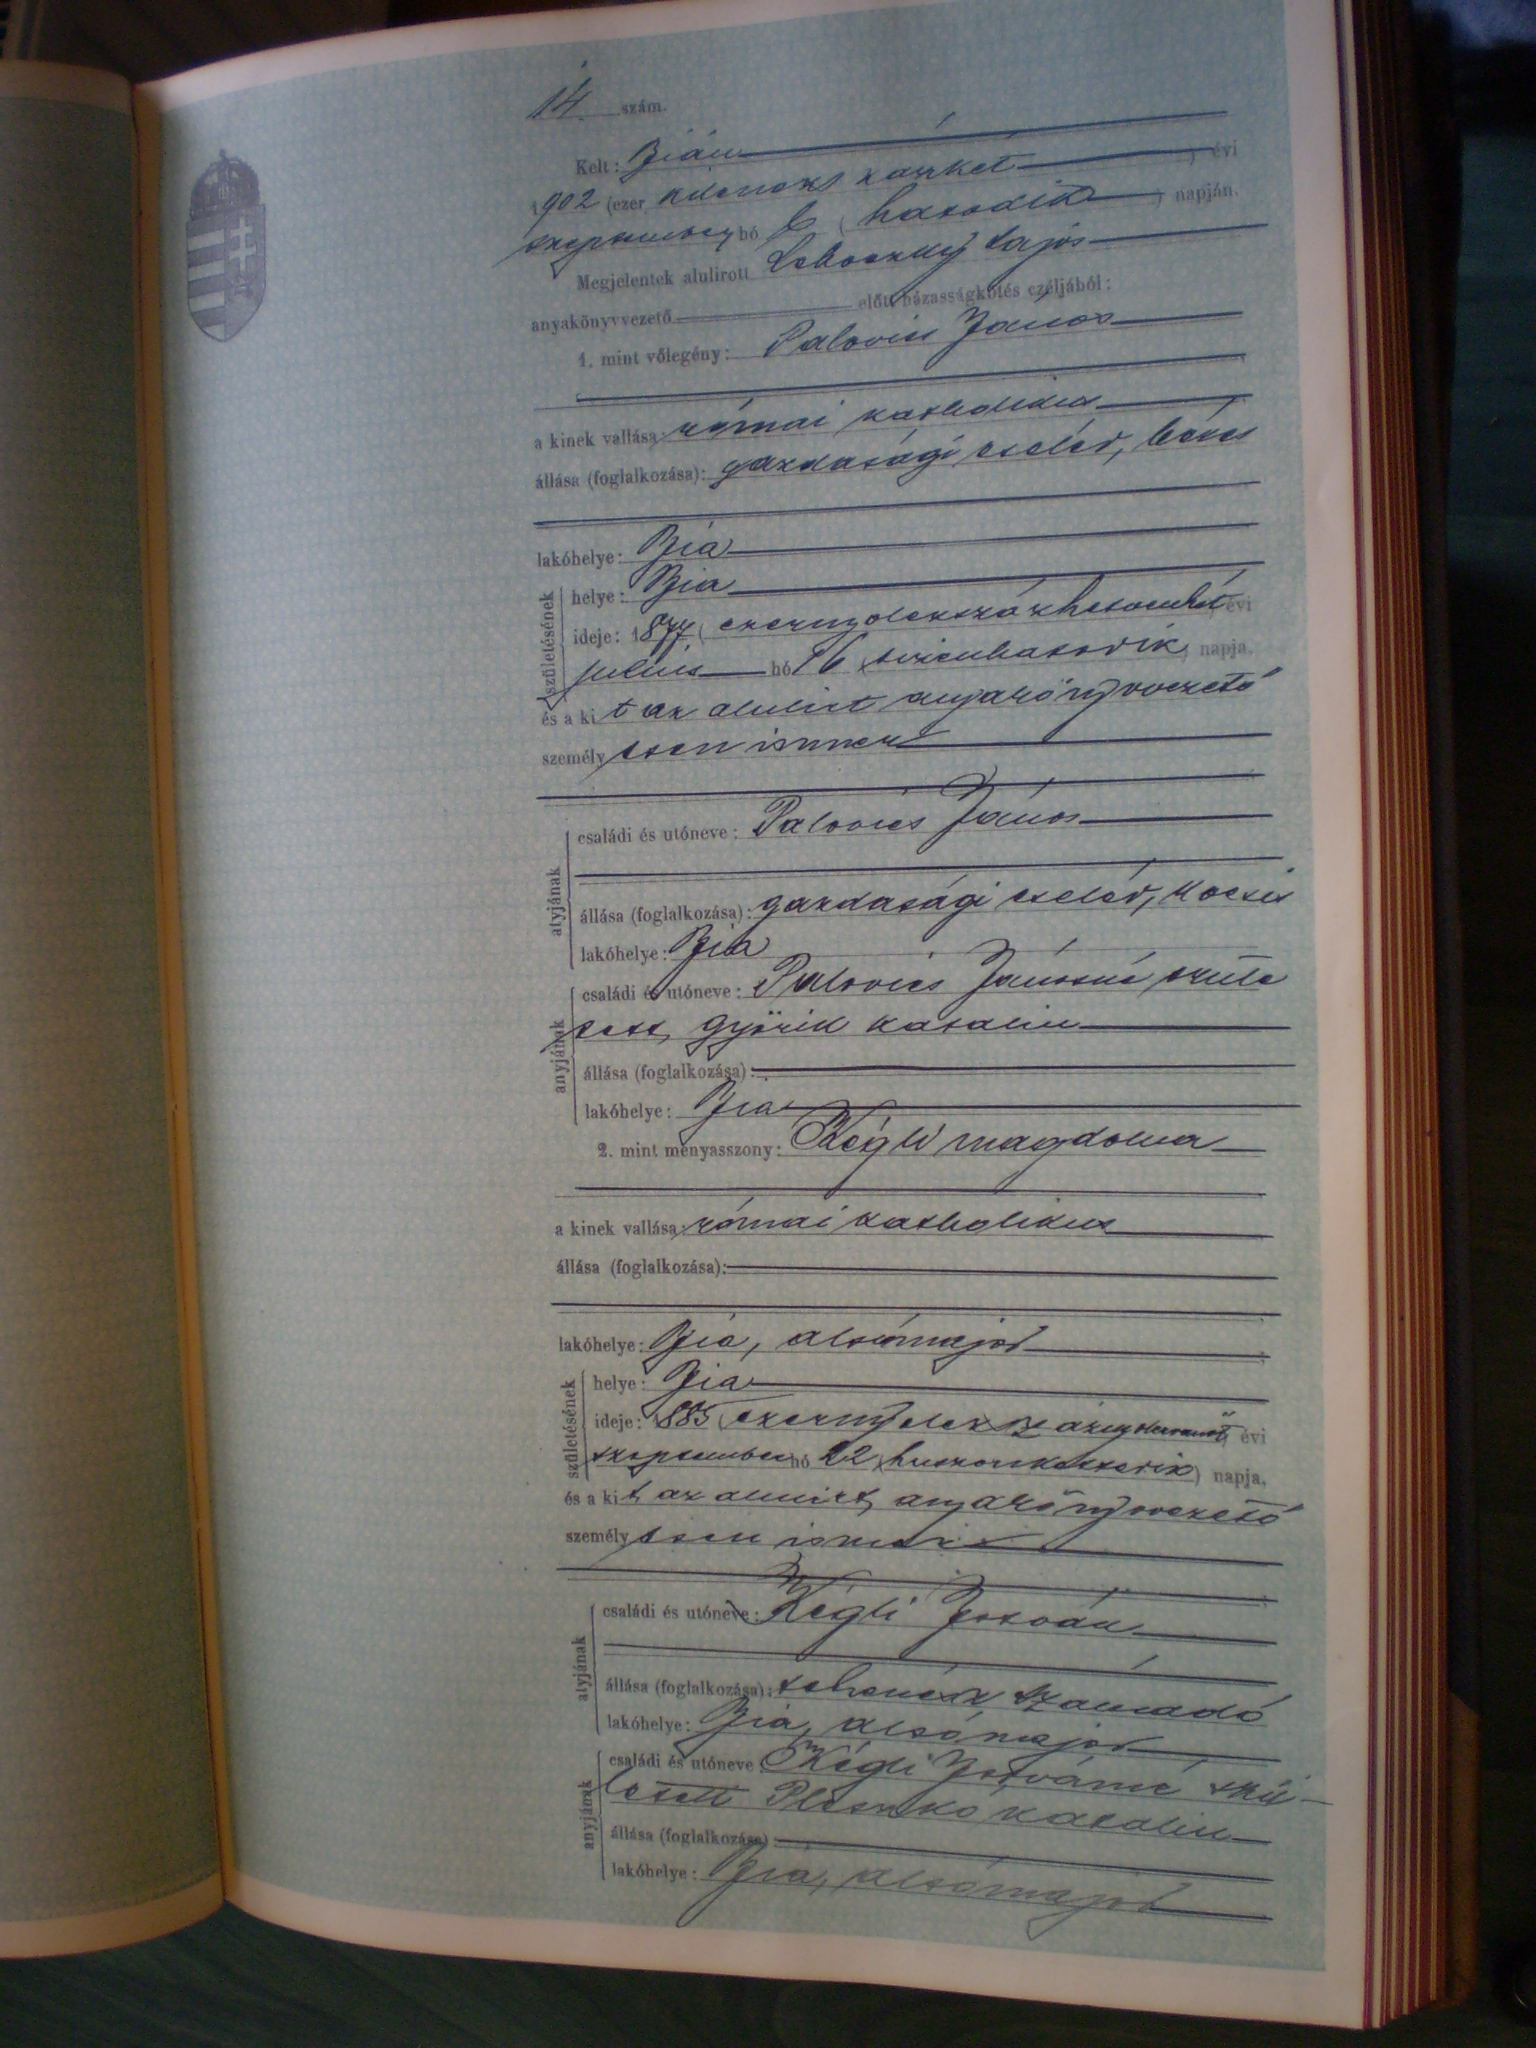 14. szám.
Kelt: Bián
1902 (ezer kilenczszázkét) évi
szeptember hó 6 (hatodik) napján.
Megjelentek alulirott Lehoczky Lajos
anyakönyvvezető előtt házasságkötés czéljából:
1. mint vőlegény: Palovics János
a kinek vallása: római katholikus
állása (foglalkozása): gazdasági cseléd, béres
lakóhelye: Bia
születésének
helye: Bia
ideje: 1877 (ezernyolczszázhetvenhét) évi
julius hó 16 (tizenhatodik) napja,
és a kit az alulirt anyakönyvvezető
személyesen ismer
atyjának
családi és utóneve: Palovics János
állása (foglalkozása): gazdasági cseléd, kocsis
lakóhelye: Bia
anyjának
családi és utóneve: Palovics Jánosné szüle
tett Győrik Katalin
állása (foglalkozása):
lakóhelye: Bia
2. mint menyasszony: Kégli Magdolna
a kinek vallása: római katholikus
állása (foglalkozása):
lakóhelye: Bia, alsómajor
születésének
helye: Bia
ideje: 1885 (ezernyolczszáznyolczvanöt) évi
szeptember hó 22 (huszonkettedik) napja,
és a kit az alulirt anyakönyvvezető
személyesen ismer
atyjának
családi és utóneve: Kégli István
állása (foglalkozása): tehenész számadó
lakóhelye: Bia, alsómajor
anyjának
családi és utóneve: Kégli Istvánné szü-
letett Katalin
állása (foglalkozása):
lakóhelye: Bia, alsómajor